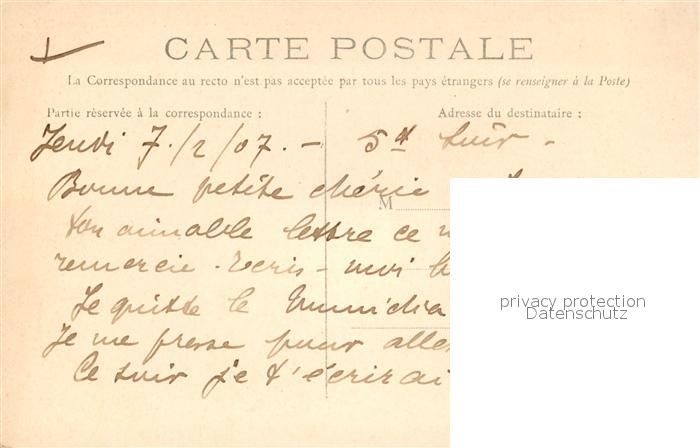 CARTE POSTALE
La Correspondance au recto n'est pas acceptée par tous les pays étrangers (se renseigner à la Poste)
Partie réservée à la correspondance : Adresse du destinataire :
Jeudi 7/2/07. - 5h Soir -
Bonne petite chérie
M
ton aimable lettre ce
remercie. Ecris-moi
Je quitte le
Je me presse pour aller
Ce soir je t'écrirai
privacy protection
Datenschutz